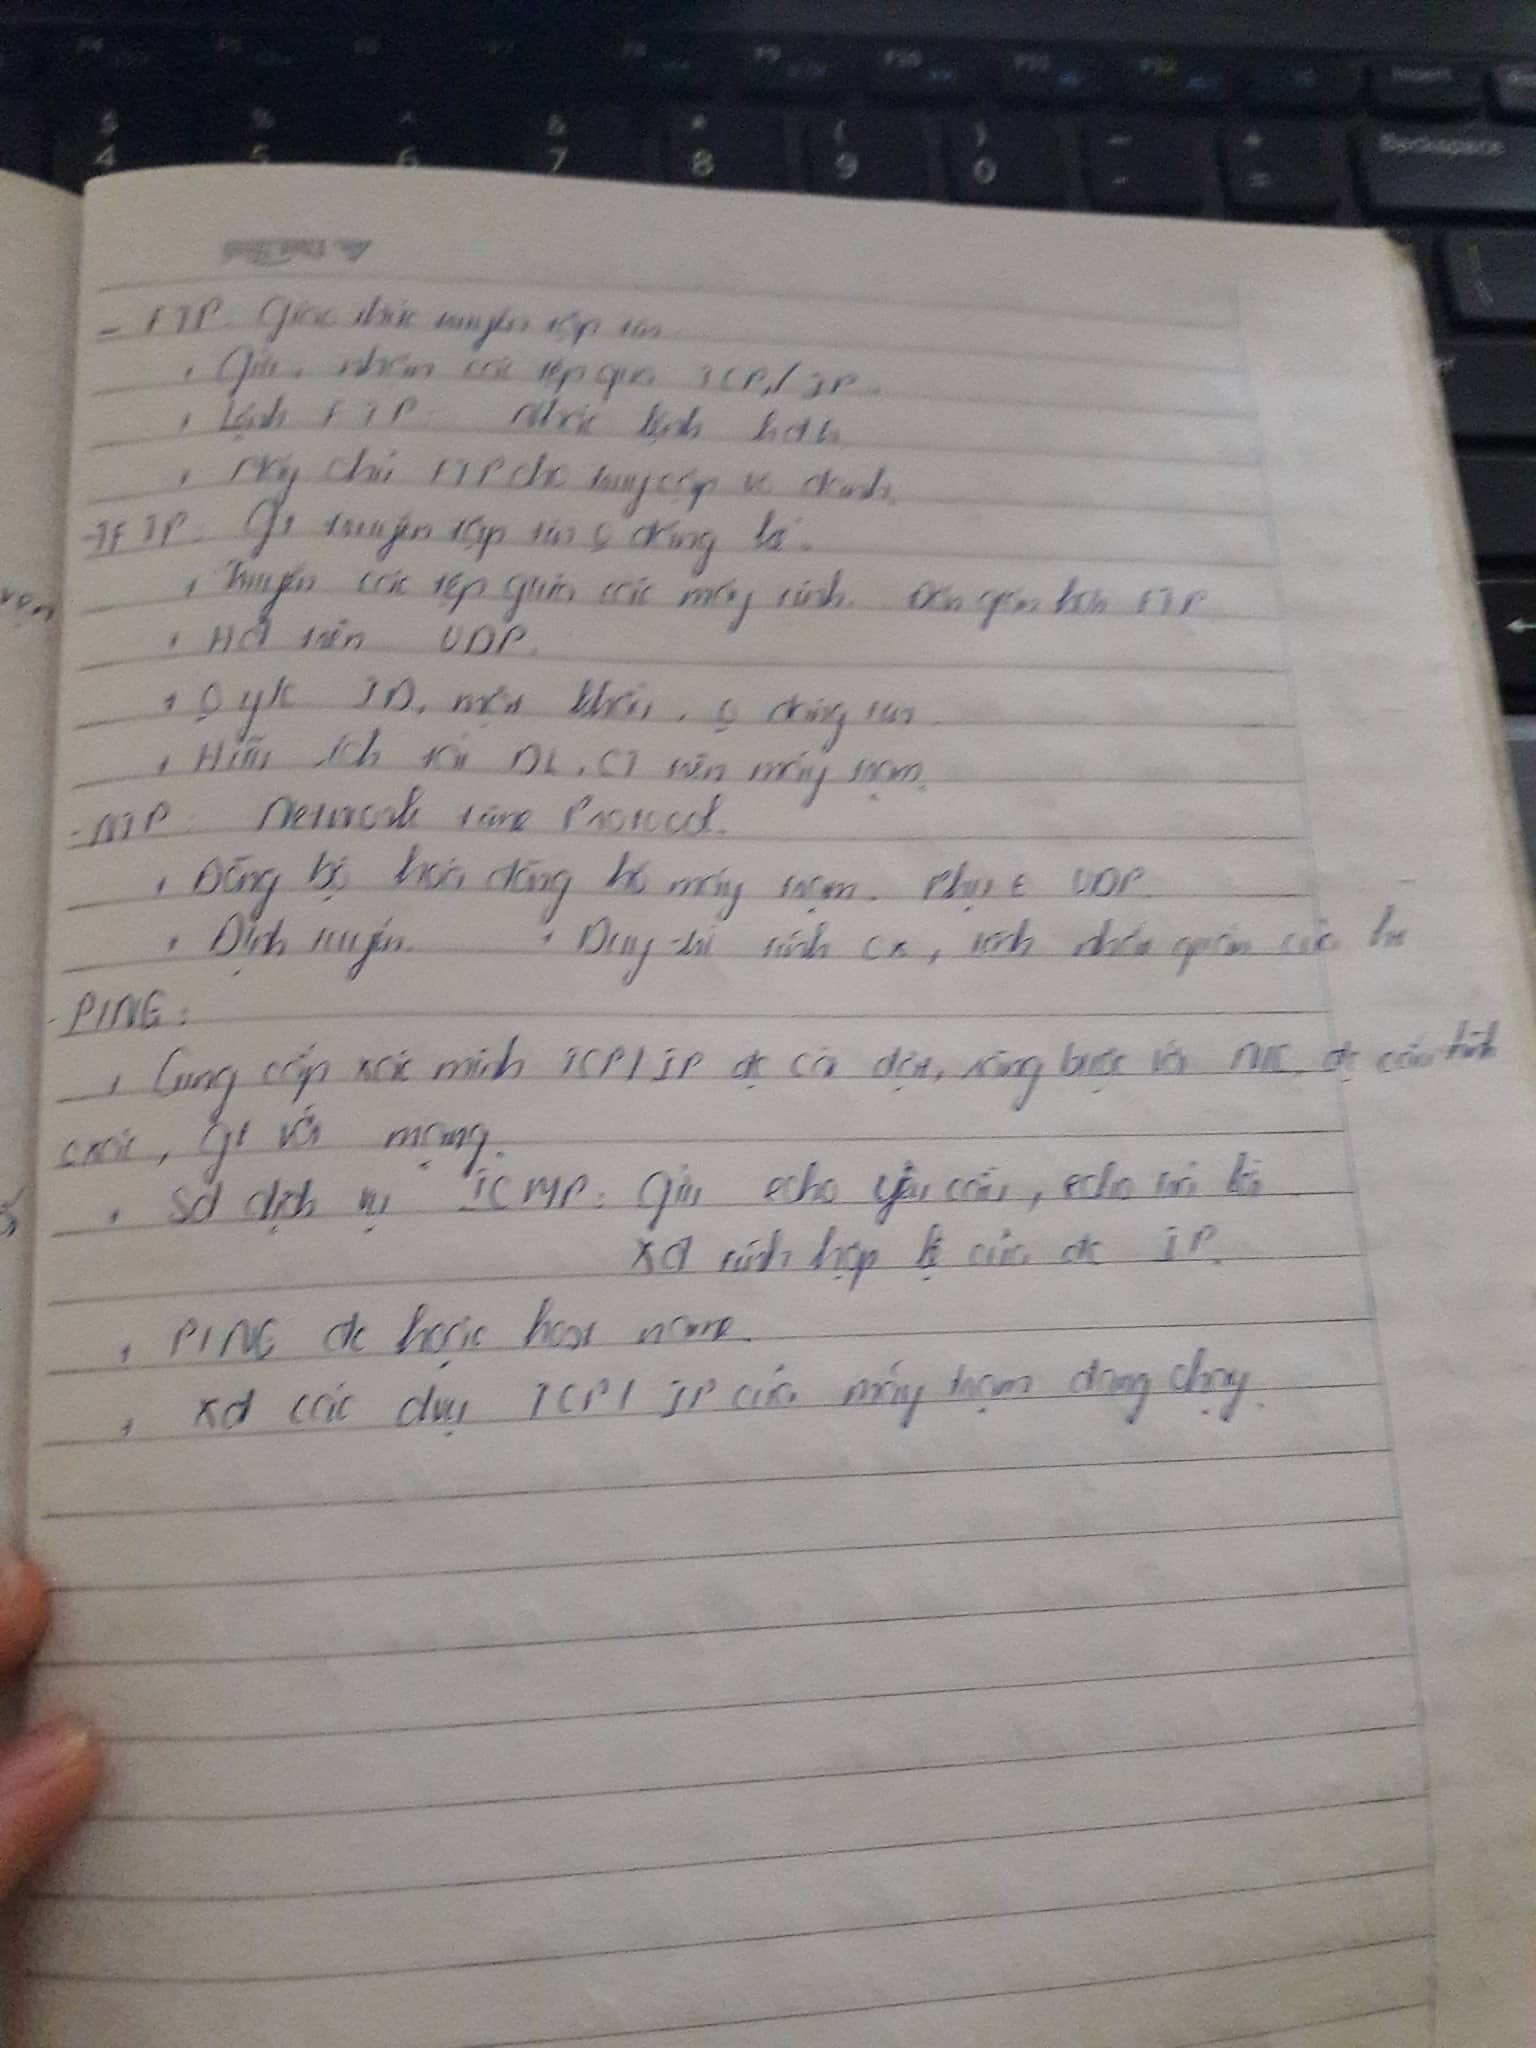 - FTP: Giao thức truyền tập tin
+ Gửi, nhận các tệp qua TCP/IP.
+ Lệnh FTP: Nhắc lệnh hđh
+ Máy chủ FTP cho truy cập vô danh.
- TFTP: Gt truyền tập tin đáng
+ Truyền các tệp giữa các máy tính. Đơn giản hơn FTP
+ Hđ trên UDP.
+ ID, mật khẩu,
+ Hữu ích tải DL, CT trên máy trạm.
- NTP: Network time Protocol.
+ Đồng bộ hoá đồng hồ máy trạm. Phụ UDP.
+ Định tuyến. + Duy trì tính cx, tính nhất quán của
- PING:
+ Cung cấp xác minh TCP/IP đc cài đặt, ràng buộc với NIC, đc cấu hình
cxác, gt với mạng.
+ Sd dịch vụ ICMP: Gửi echo yêu cầu, echo trả lời
Xđ tính hợp lệ của đc IP.
+ PING đc hoặc host name.
+ Xđ các dvụ TCP/IP của máy trạm đang chạy.
4 5 6 7 8 9 0
F9 F10 Insert
Backspace